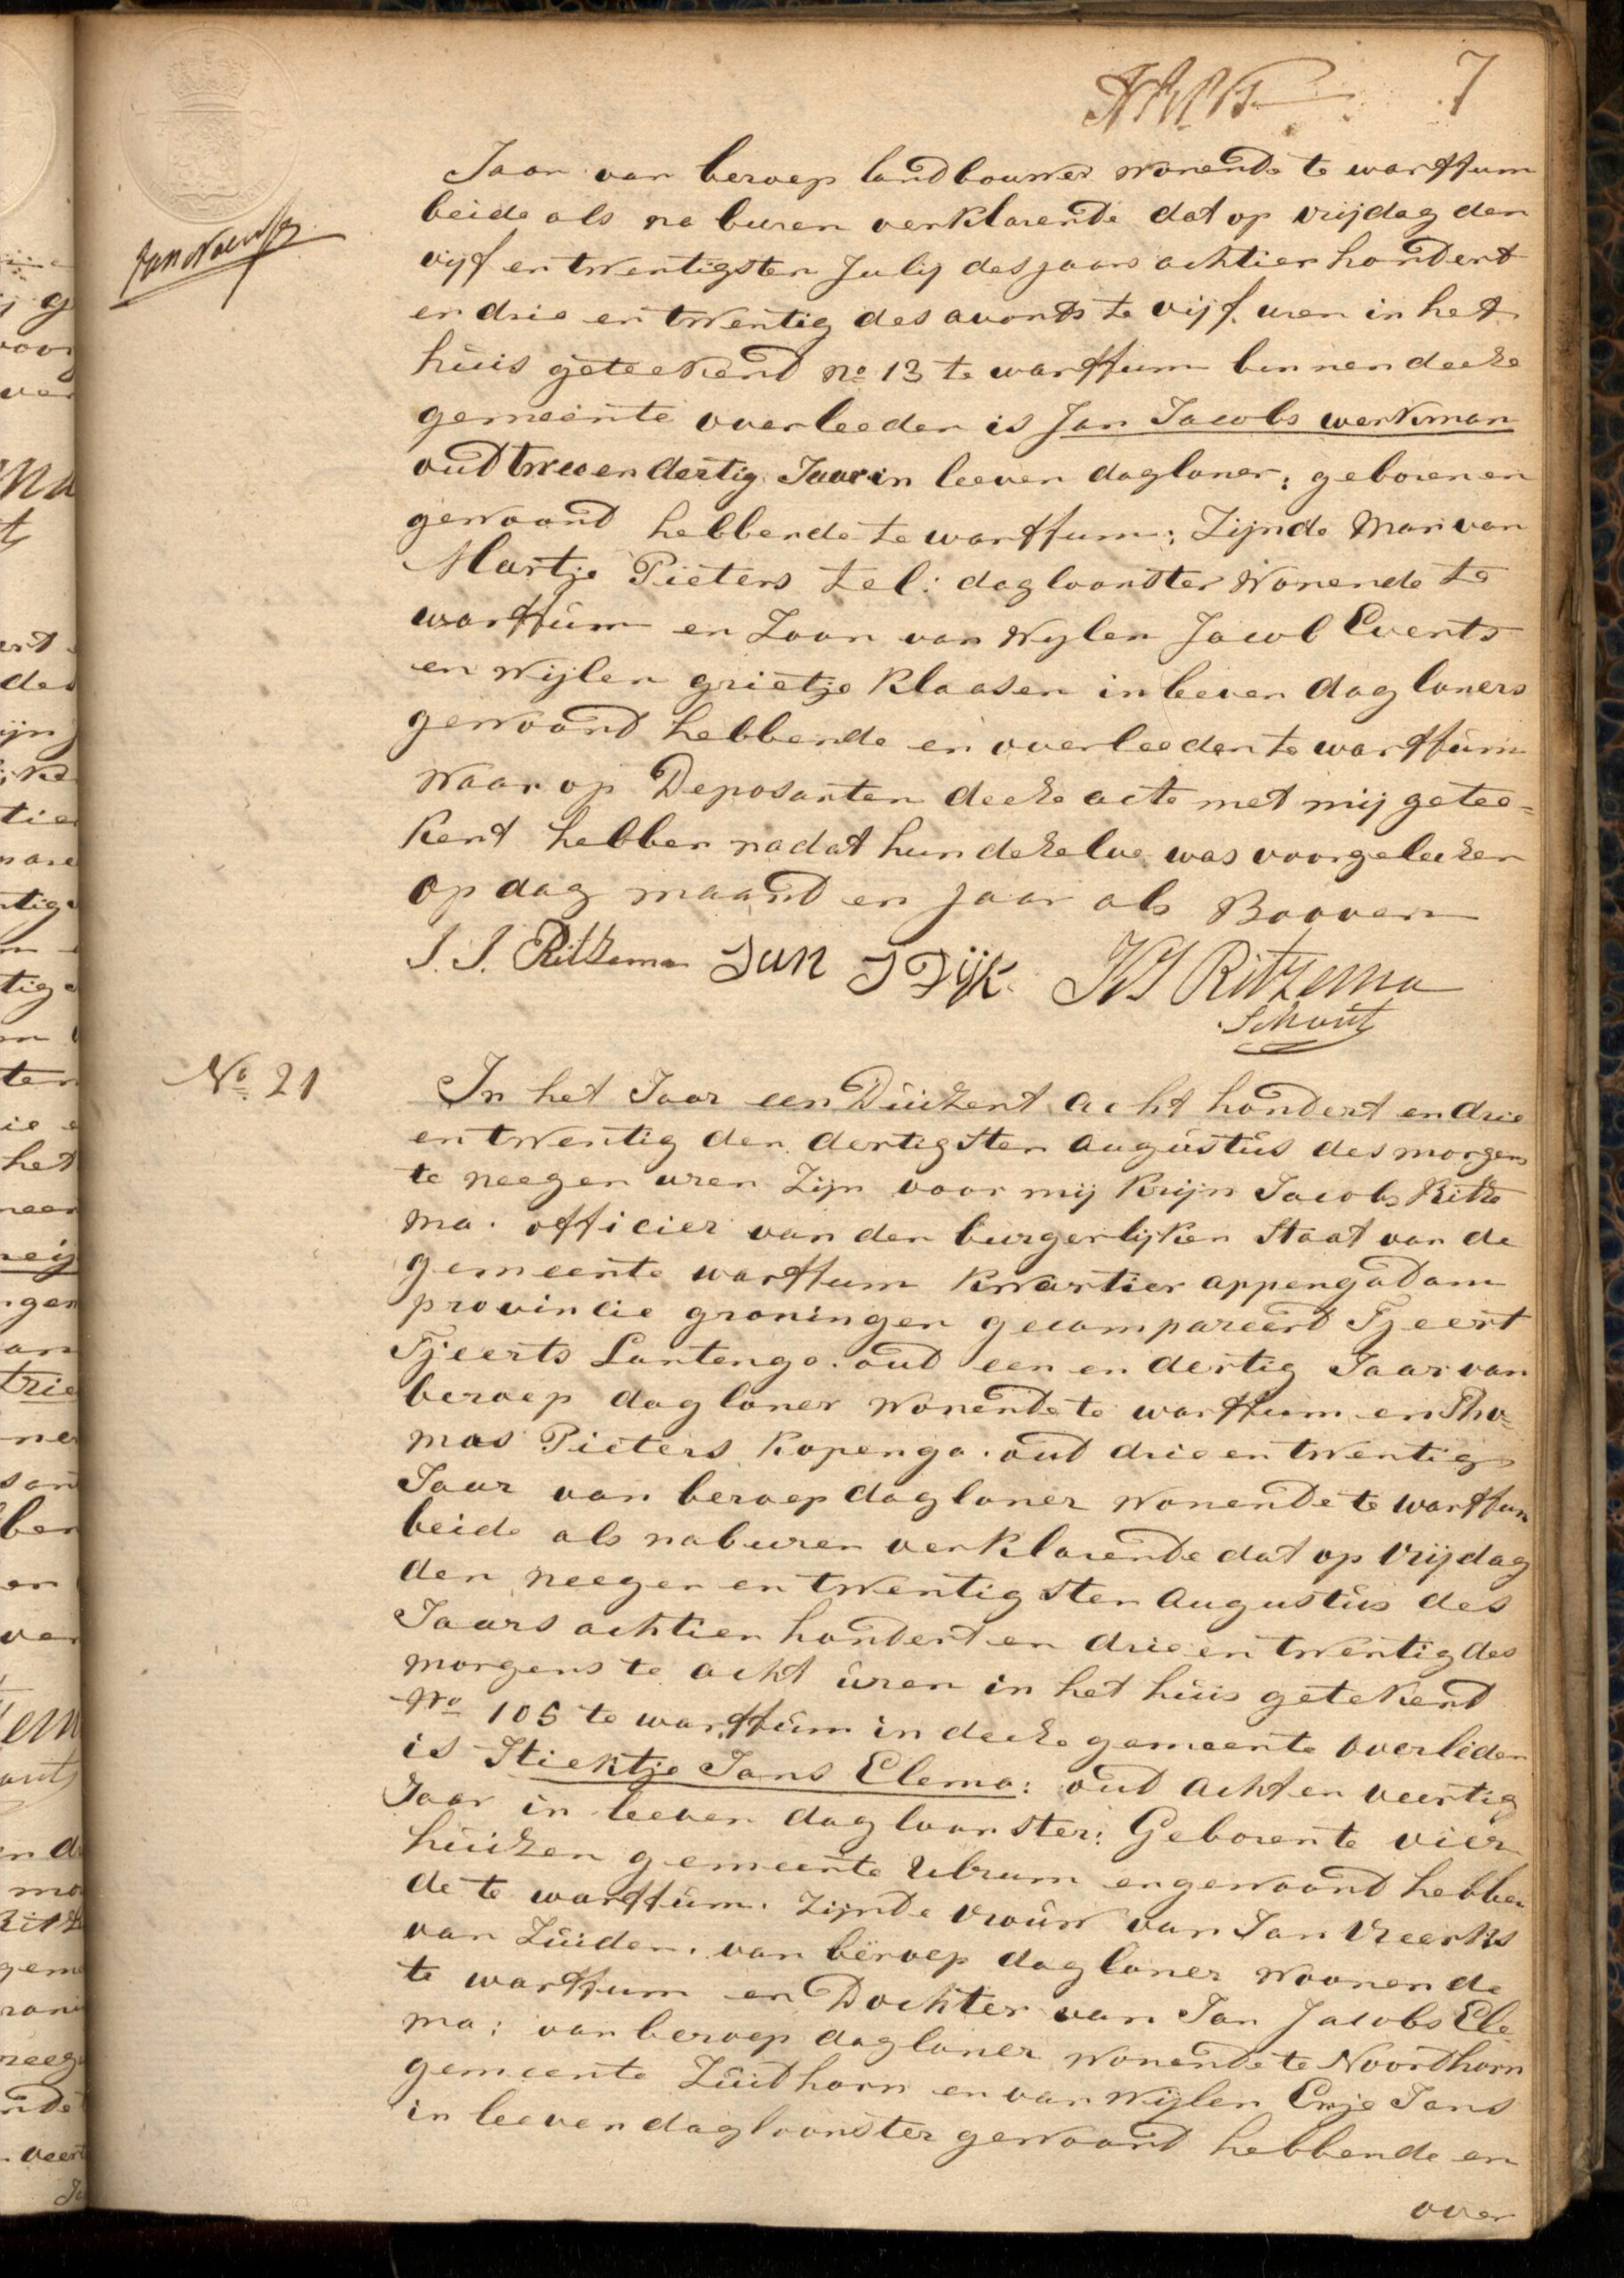 7
Jaar van beroep landbouwer wonende te warffum
beide als na buren verklarende dat op vrijdag den
vijf en twentigsten Julij des jaars achtien hondert
en drie en twentig des avonds te vijf uren in het
huis geteekend no 13 te warffum binnen deeze
gemeente overleeden is Jan Jacobs werkman
oud twee en dertig Jaar in leeven dagloner; geboren en
gewoond hebbende te warffum; Zijnde Man van
Martje Pieters Zel: dagloonster Wonende te
warffum en Zoon van Wylen Jacob Everts
en Wijlen grietje Klaasen in leeven dagloners
gewoond hebbende en overleeden te warffum
Waar op Deposanten deeze acte met mij getee=
kent hebben na dat hun dezelve was voorgeleezen
op dag maand en Jaar als Booven
J. J. Ritzema Jan J Dijk KJ Ritzema
Schout
No. 21
In het Jaar een Duizent acht hondert en drie
en twentig den dertigsten augustus des morgens
te neegen uren Zijn voor mij Krijn Jacobs Ritze
ma. officier van den burgerlyken Staat van de
gemeente warffum Kwartier appengadam
provincie groningen gecompareerd Tjeert
Tjeerts Lantenga. oud een en dertig Jaar van
beroep dagloner wonende te warffum en Tho=
mas Pieters Kopenga. oud drie en twentig
Jaar van beroep dagloner wonende te warffum
beide als naburen verklarende dat op Vrijdag
den neegen en twentigsten augustus des
Jaars achtien hondert en drie en twentig des
morgens te acht uren in het huis getekend
No 105 te warffum in deeze gemeente overliden
is Itiektje Jans Elema: oud acht en veertig
Jaar in leeven dagloonster; Geboren te vier
huizen gemeente Ulrum en gewoond hebben
de te warffum. Zijnde vrouw van Jan Vreerks
van Zuiden. van beroep dagloner woonende
te warffum en Dochter van Jan Jacobs Ele
ma; van beroep dagloner wonende te Noordhorn
gemeente Zuidhorn en van Wijlen Enje Jans
in leeven dagloonster gewoond hebbende en
over